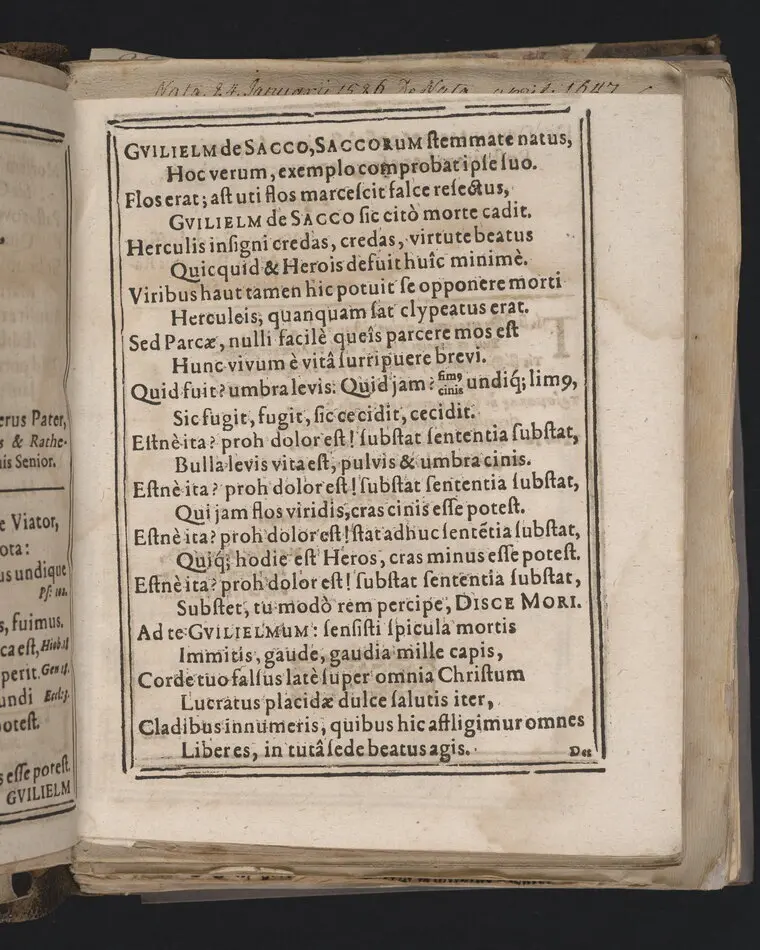 Nata. 24. Januarii 1586
erus Pater,
s & Rathe-
is Senior.
e Viator,
ota:
us undique
Ps: 102.
s, fuimus.
ca est, Hiob. 1
perit. Gen
undi Eccles.
otest.
s esse potest.
GVILIELM
GVILIELM de SACCO, SACCORUM ſtemmate natus,
Hoc verum, exemplo comprobat ipſe ſuo.
Flos erat; aſt uti flos marceſcit falce reſectus,
GVILIELM de SACCO ſic citò morte cadit.
Herculis inſigni credas, credas, virtute beatus
Quicquid & Herois defuit huîc minimè.
Viribus haut tamen hic potuit ſe opponere morti
Herculeis, quanquam ſat clypeatus erat.
Sed Parcæ, nulli facilè queîs parcere mos eſt
Hunc vivum è vitâ ſurripuere brevi.
Quid fuit? umbra levis: Quid jam? fimꝰ cinis undiq́; limꝰ,
Sic fugit, fugit, ſic cecidit, cecidit.
Eſtnè ita? proh dolor eſt! ſubſtat ſententia ſubſtat,
Bulla levis vita eſt, pulvis & umbra cinis.
Eſtnè ita? proh dolor eſt! ſubſtat ſententia ſubſtat,
Qui jam flos viridis, cras cinis eſſe poteſt.
Eſtnè ita? proh dolor eſt! ſtat adhuc ſentētia ſubſtat,
Quiq́; hodie eſt Heros, cras minus eſſe poteſt.
Eſtnè ita? proh dolor eſt! ſubſtat ſententia ſubſtat,
Subſtet, tu modò rem percipe, DISCE MORI.
Ad te GVILIELMUM: ſenſiſti ſpicula mortis
Immitis, gaude, gaudia mille capis,
Corde tuo falſus latè ſuper omnia Chriſtum
Lucratus placidæ dulce ſalutis iter,
Cladibus innumeris, quibus hic affligimur omnes
Liber es, in tutâ ſede beatus agis.
Des